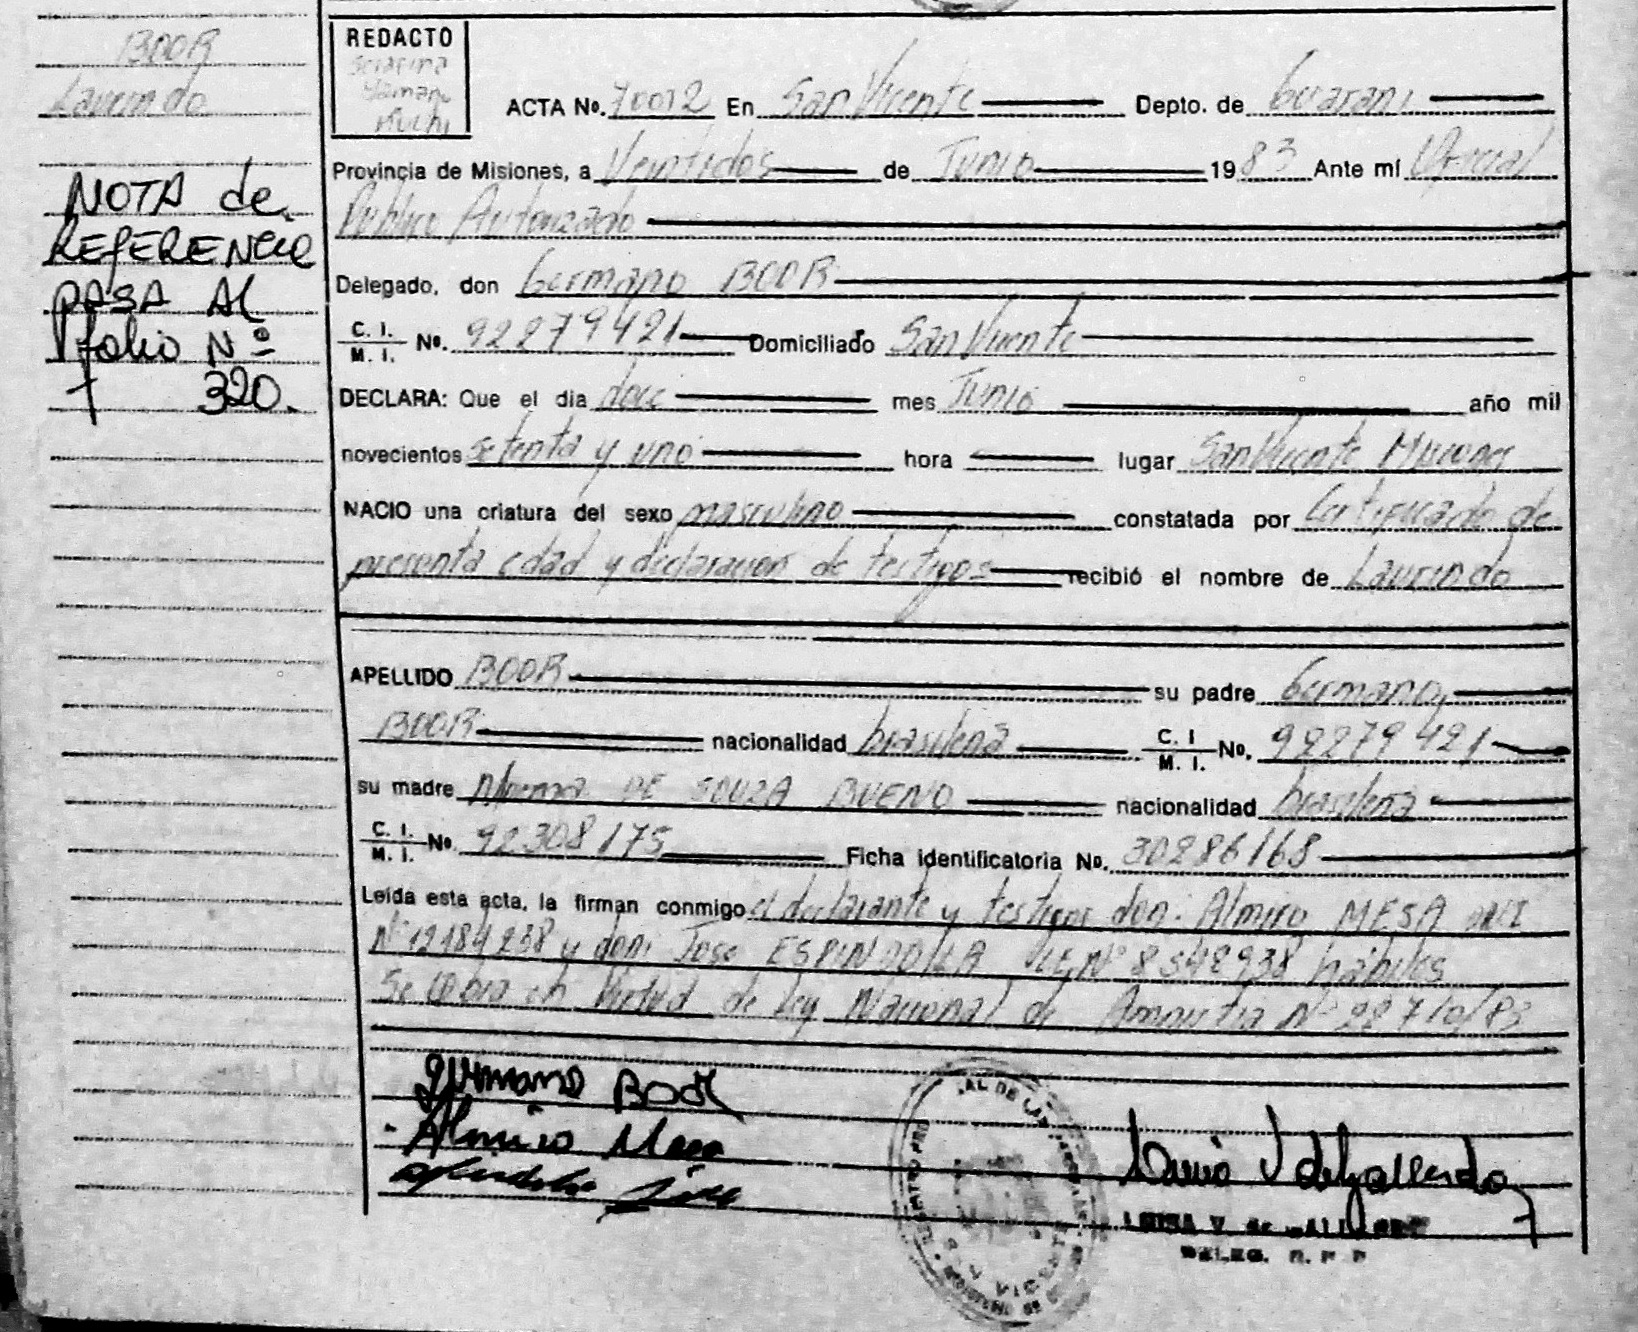 BOOR
Laurindo
NOTA de
REFERENCIA
PASA AL
folio Nº
320.
REDACTO
ACTA No. 70012 En San Vicente Depto. de Guaraní
Provincia de Misiones, a Veintidos de Junio 1983 Ante mí Oficial
Público Autorizado
Delegado, don Germano BOOR
C. I. / M. I. No. 92279421 Domiciliado San Vicente
DECLARA: Que el día doce mes Junio año mil
novecientos setenta y uno hora lugar San Vicente Misiones
NACIO una criatura del sexo masculino constatada por Certificado de
presunta edad y declaracion de testigos recibió el nombre de Laurindo
APELLIDO BOOR su padre Germano
BOOR nacionalidad brasileña C. I / M. I. No. 92279421
su madre DE SOUZA BUENO nacionalidad brasileña
C. I. / M. I. No. 92308175 Ficha identificatoria No. 30286168
Leída esta acta, la firman conmigo el declarante y testigos don: Almiro MESA
Nº 12184238 y don: Jose ESPINDOLA Nº 8548938 hábiles
Se labra en Virtud de Ley Nacional de Amnistia Nº 22710/83
Germano Boor
Almiro Mesa
LUISA V. de
DELEG. R. P. P